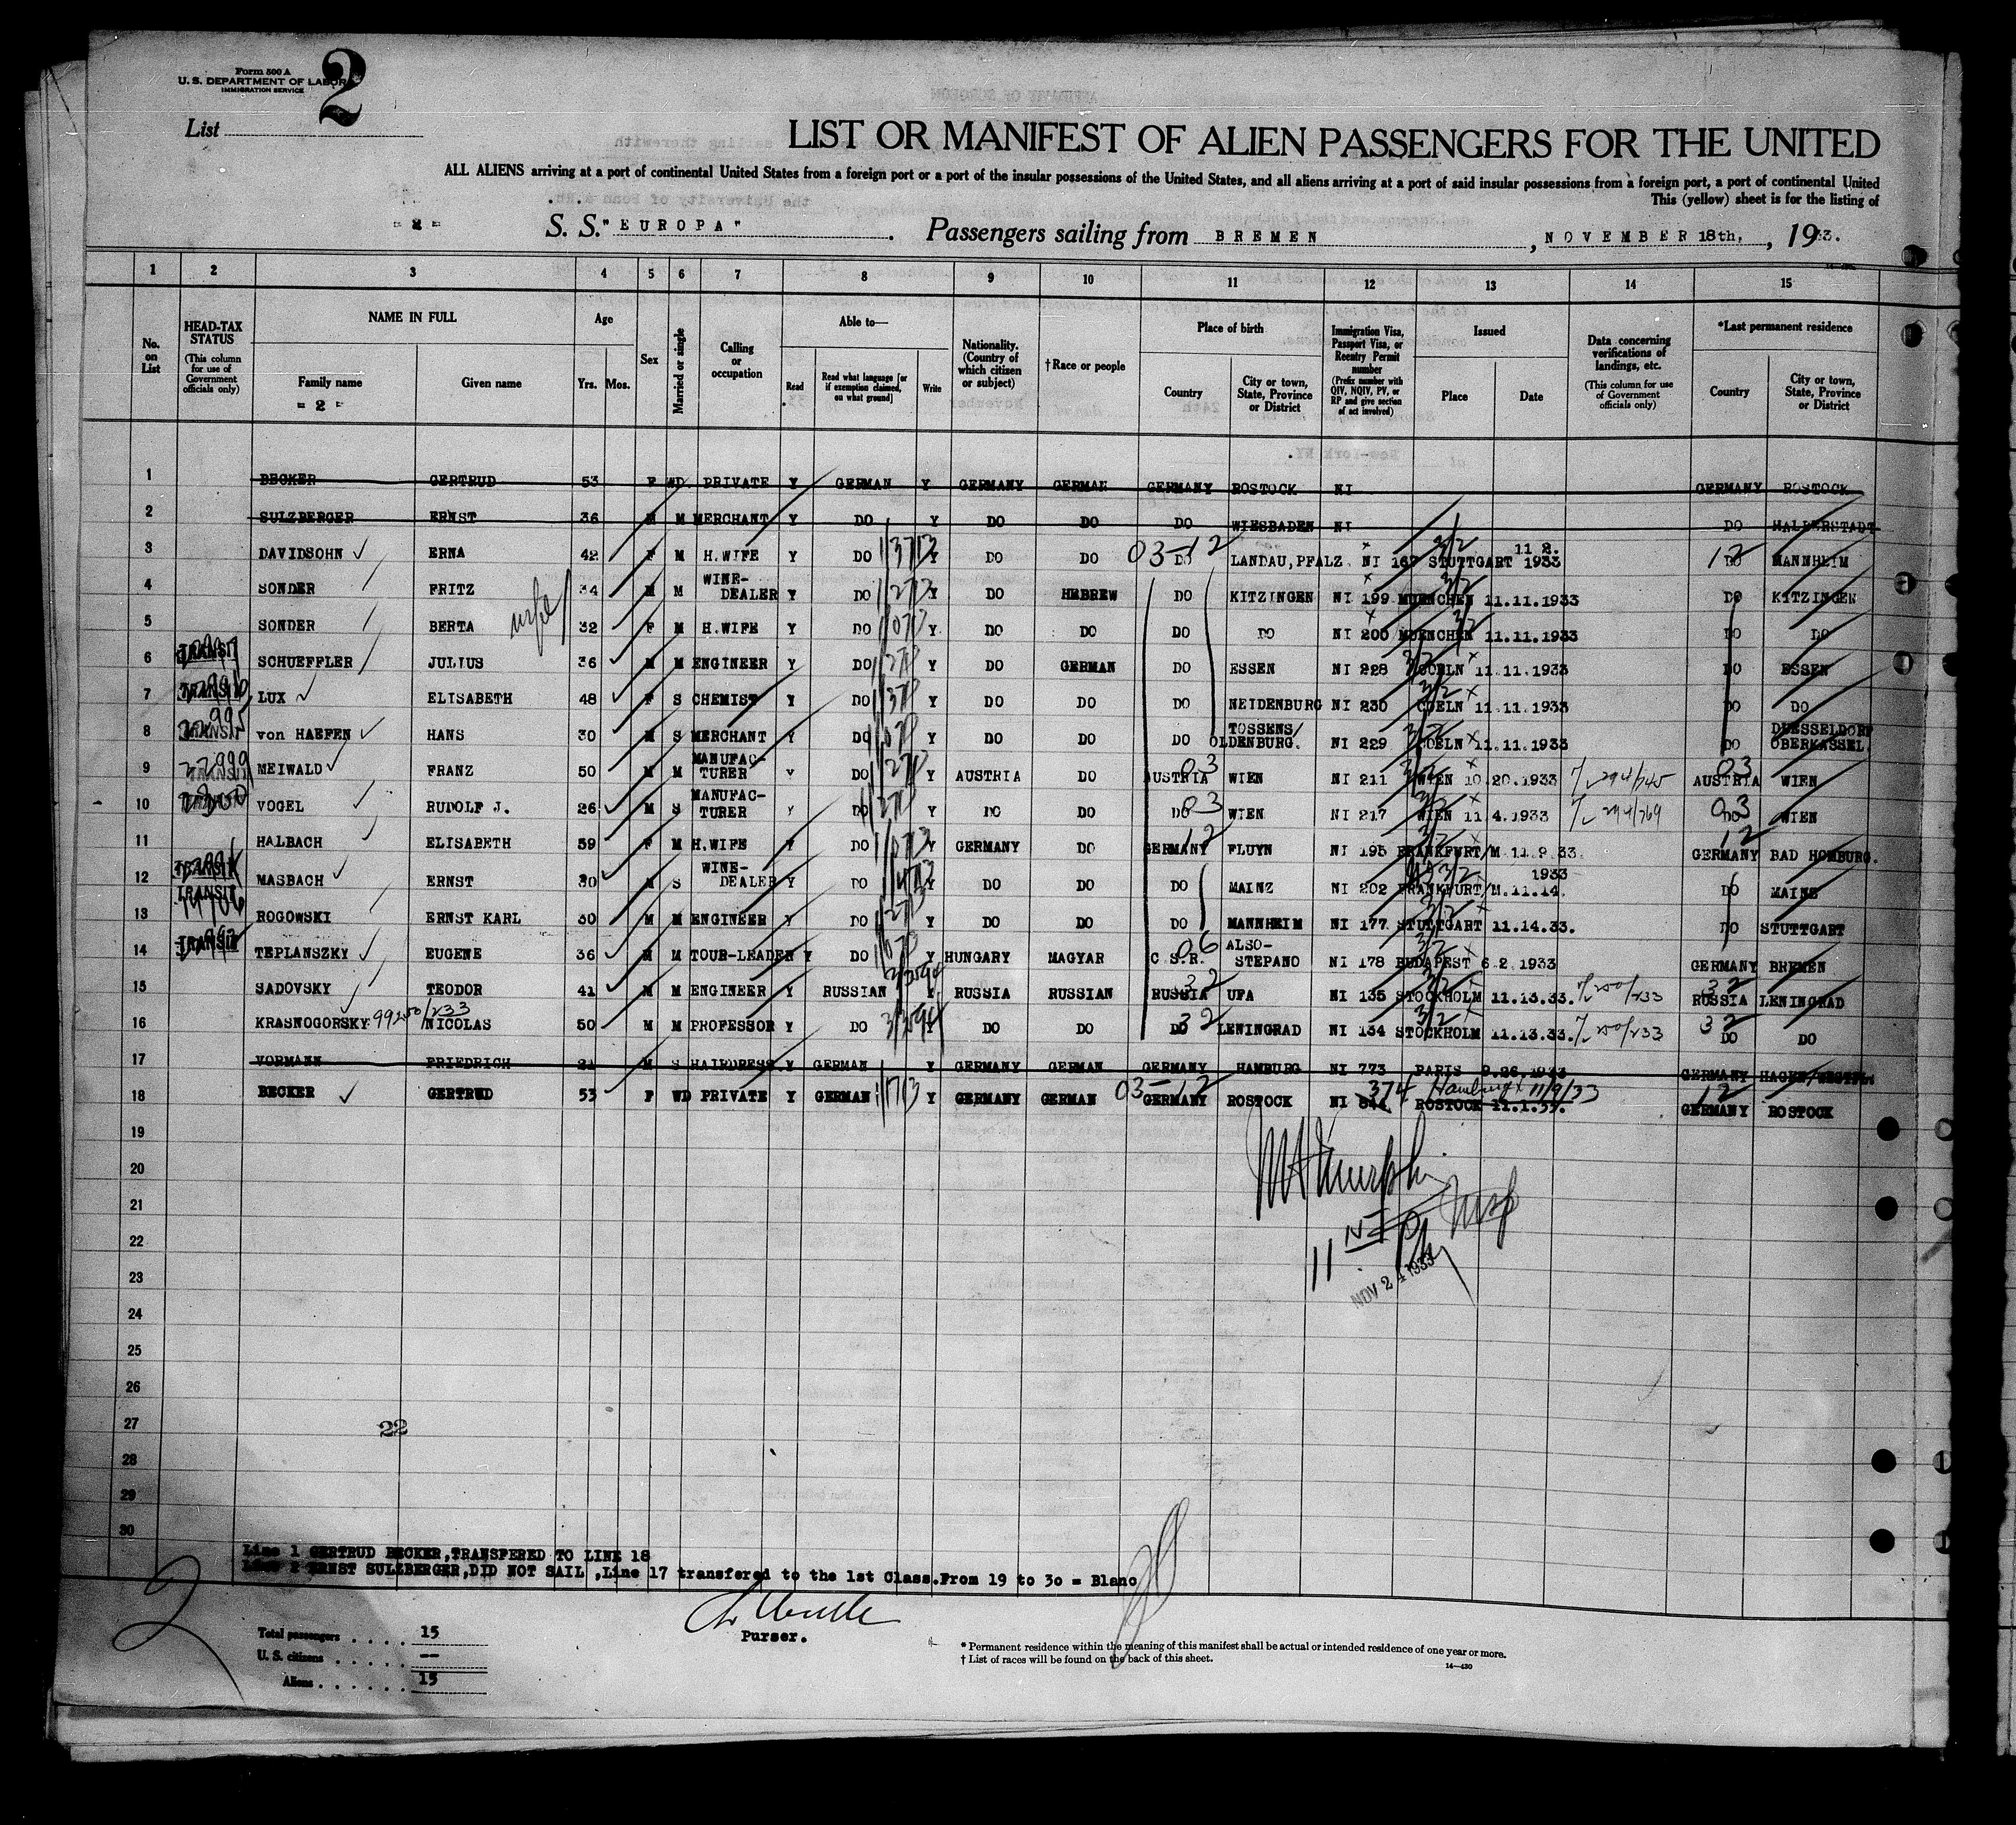 Form 500 A
U. S. DEPARTMENT OF LABOR
IMMIGRATION SERVICE
2
List
LIST OR MANIFEST OF ALIEN PASSENGERS FOR THE UNITED
ALL ALIENS arriving at a port of continental United States from a foreign port or a port of the insular possessions of the United States, and all aliens arriving at a port of said insular possessions from a foreign port, a port of continental United
This (yellow) sheet is for the listing of
- 2 - S. S. "EUROPA". Passengers sailing from BREMEN, NOVEMBER 18th, 1933.
1 2 3 4 5 6 7 8 9 10 11 12 13 14 15
No. on List
HEAD-TAX STATUS (This column for use of Government officials only)
NAME IN FULL
Family name
- 2 -
Given name
Age
Yrs. Mos.
Sex
Married or single
Calling or occupation
Able to—
Read
Read what language [or if exemption claimed, on what ground]
Write
Nationality. (Country of which citizen or subject)
†Race or people
Place of birth
Country
City or town, State, Province or District
Immigration Visa, Passport Visa, or Reentry Permit number (Prefix number with QIV, NQIV, PV, or RP and give section of act involved)
Issued
Place
Date
Data concerning verifications of landings, etc. (This column for use of Government officials only)
*Last permanent residence
Country
City or town, State, Province or District
1 BECKER GERTRUD 53 F WD. PRIVATE Y GERMAN Y GERMANY GERMAN GERMANY ROSTOCK NI GERMANY ROSTOCK
2 SULZBERGER ERNST 36 M M MERCHANT Y DO Y DO DO DO WIESBADEN NI DO HALBERSTADT
3 DAVIDSOHN ERNA 42 F M H.WIFE Y DO Y DO DO 03-12 DO LANDAU, PFALZ NI 167 3/2 STUTTGART 11 2. 1933 12 DO MANNHEIM
4 SONDER FRITZ 34 M M WINE-DEALER Y DO Y DO HEBREW DO KITZINGEN NI 199 3/2 MUENCHEN 11.11.1933 DO KITZINGEN
5 SONDER BERTA wife 32 F M H.WIFE Y DO Y DO DO DO DO NI 200 3/2 MUENCHEN 11.11.1933 DO DO
6 TRANSIT SCHUEFFLER JULIUS 36 M M ENGINEER Y DO Y DO GERMAN DO ESSEN NI 228 3/2 COELN 11.11.1933 DO ESSEN
7 TRANSIT LUX ELISABETH 48 F S CHEMIST Y DO Y DO DO DO NEIDENBURG NI 230 3/2 COELN 11.11.1933 DO DO
8 TRANSIT von HAEFEN HANS 30 M S MERCHANT Y DO Y DO DO DO TOSSENS/OLDENBURG. NI 229 3/2 COELN 11.11.1933 DO DUESSELDORF OBERKASSEL.
9 TRANSIT MEIWALD FRANZ 50 M M MANUFAC-TURER Y DO Y AUSTRIA DO 03 AUSTRIA WIEN NI 211 3/2 WIEN 10.20.1933 03 AUSTRIA WIEN
10 VOGEL RUDOLF J. 26 M S MANUFAC-TURER Y DO Y DO DO 03 DO WIEN NI 217 3/2 WIEN 11 4.1933 03 DO WIEN
11 HALBACH ELISABETH 59 F M H.WIFE Y DO Y GERMANY DO 12 GERMANY FLUYN NI 195 3/2 FRANKFURT/M. 11.9 33. 12 GERMANY BAD HOMBURG.
12 TRANSIT MASBACH ERNST 30 M S WINE-DEALER Y DO Y DO DO DO MAINZ NI 202 3/2 FRANKFURT/M. 11.14. 1933 DO MAINZ
13 TRANSIT ROGOWSKI ERNST KARL 30 M M ENGINEER Y DO Y DO DO DO MANNHEIM NI 177 3/2 STUTTGART 11.14.33. DO STUTTGART
14 TRANSIT TEPLANSZKY EUGENE 36 M M TOUR-LEADER Y DO Y HUNGARY MAGYAR 06 C.S.R. ALSO-STEPANO NI 178 3/2 BUDAPEST 6 2 1933 GERMANY BREMEN
15 SADOVSKY TEODOR 41 M M ENGINEER Y RUSSIAN Y RUSSIA RUSSIAN 32 RUSSIA UFA NI 135 3/2 STOCKHOLM 11.13.33. 32 RUSSIA LENINGRAD
16 KRASNOGORSKY NICOLAS 50 M M PROFESSOR Y DO Y DO DO 32 DO LENINGRAD NI 134 3/2 STOCKHOLM 11.13.33. 32 DO DO
17 VORMANN FRIEDRICH 21 M S HAIRDRESS. Y GERMAN Y GERMANY GERMAN GERMANY HAMBURG NI 773 PARIS 9.26.1933 GERMANY
18 BECKER GERTRUD 53 F WD PRIVATE Y GERMAN Y GERMANY GERMAN 03-12 GERMANY ROSTOCK NI 374 Hamburg 11/9/33 ROSTOCK 12 GERMANY ROSTOCK
19
20
21
22
23
NOV 24 1933
24
25
26
27
22
28
29
30
Line 1 GERTRUD BECKER, TRANSFERED TO LINE 18
Line 2 ERNST SULZBERGER, DID NOT SAIL, Line 17 transfered to the 1st Class. From 19 to 30 = Blanc
2
Purser.
Total passengers . . . . 15
U. S. citizens . . . . . —
Aliens . . . . . . 15
* Permanent residence within the meaning of this manifest shall be actual or intended residence of one year or more.
† List of races will be found on the back of this sheet.
14—430